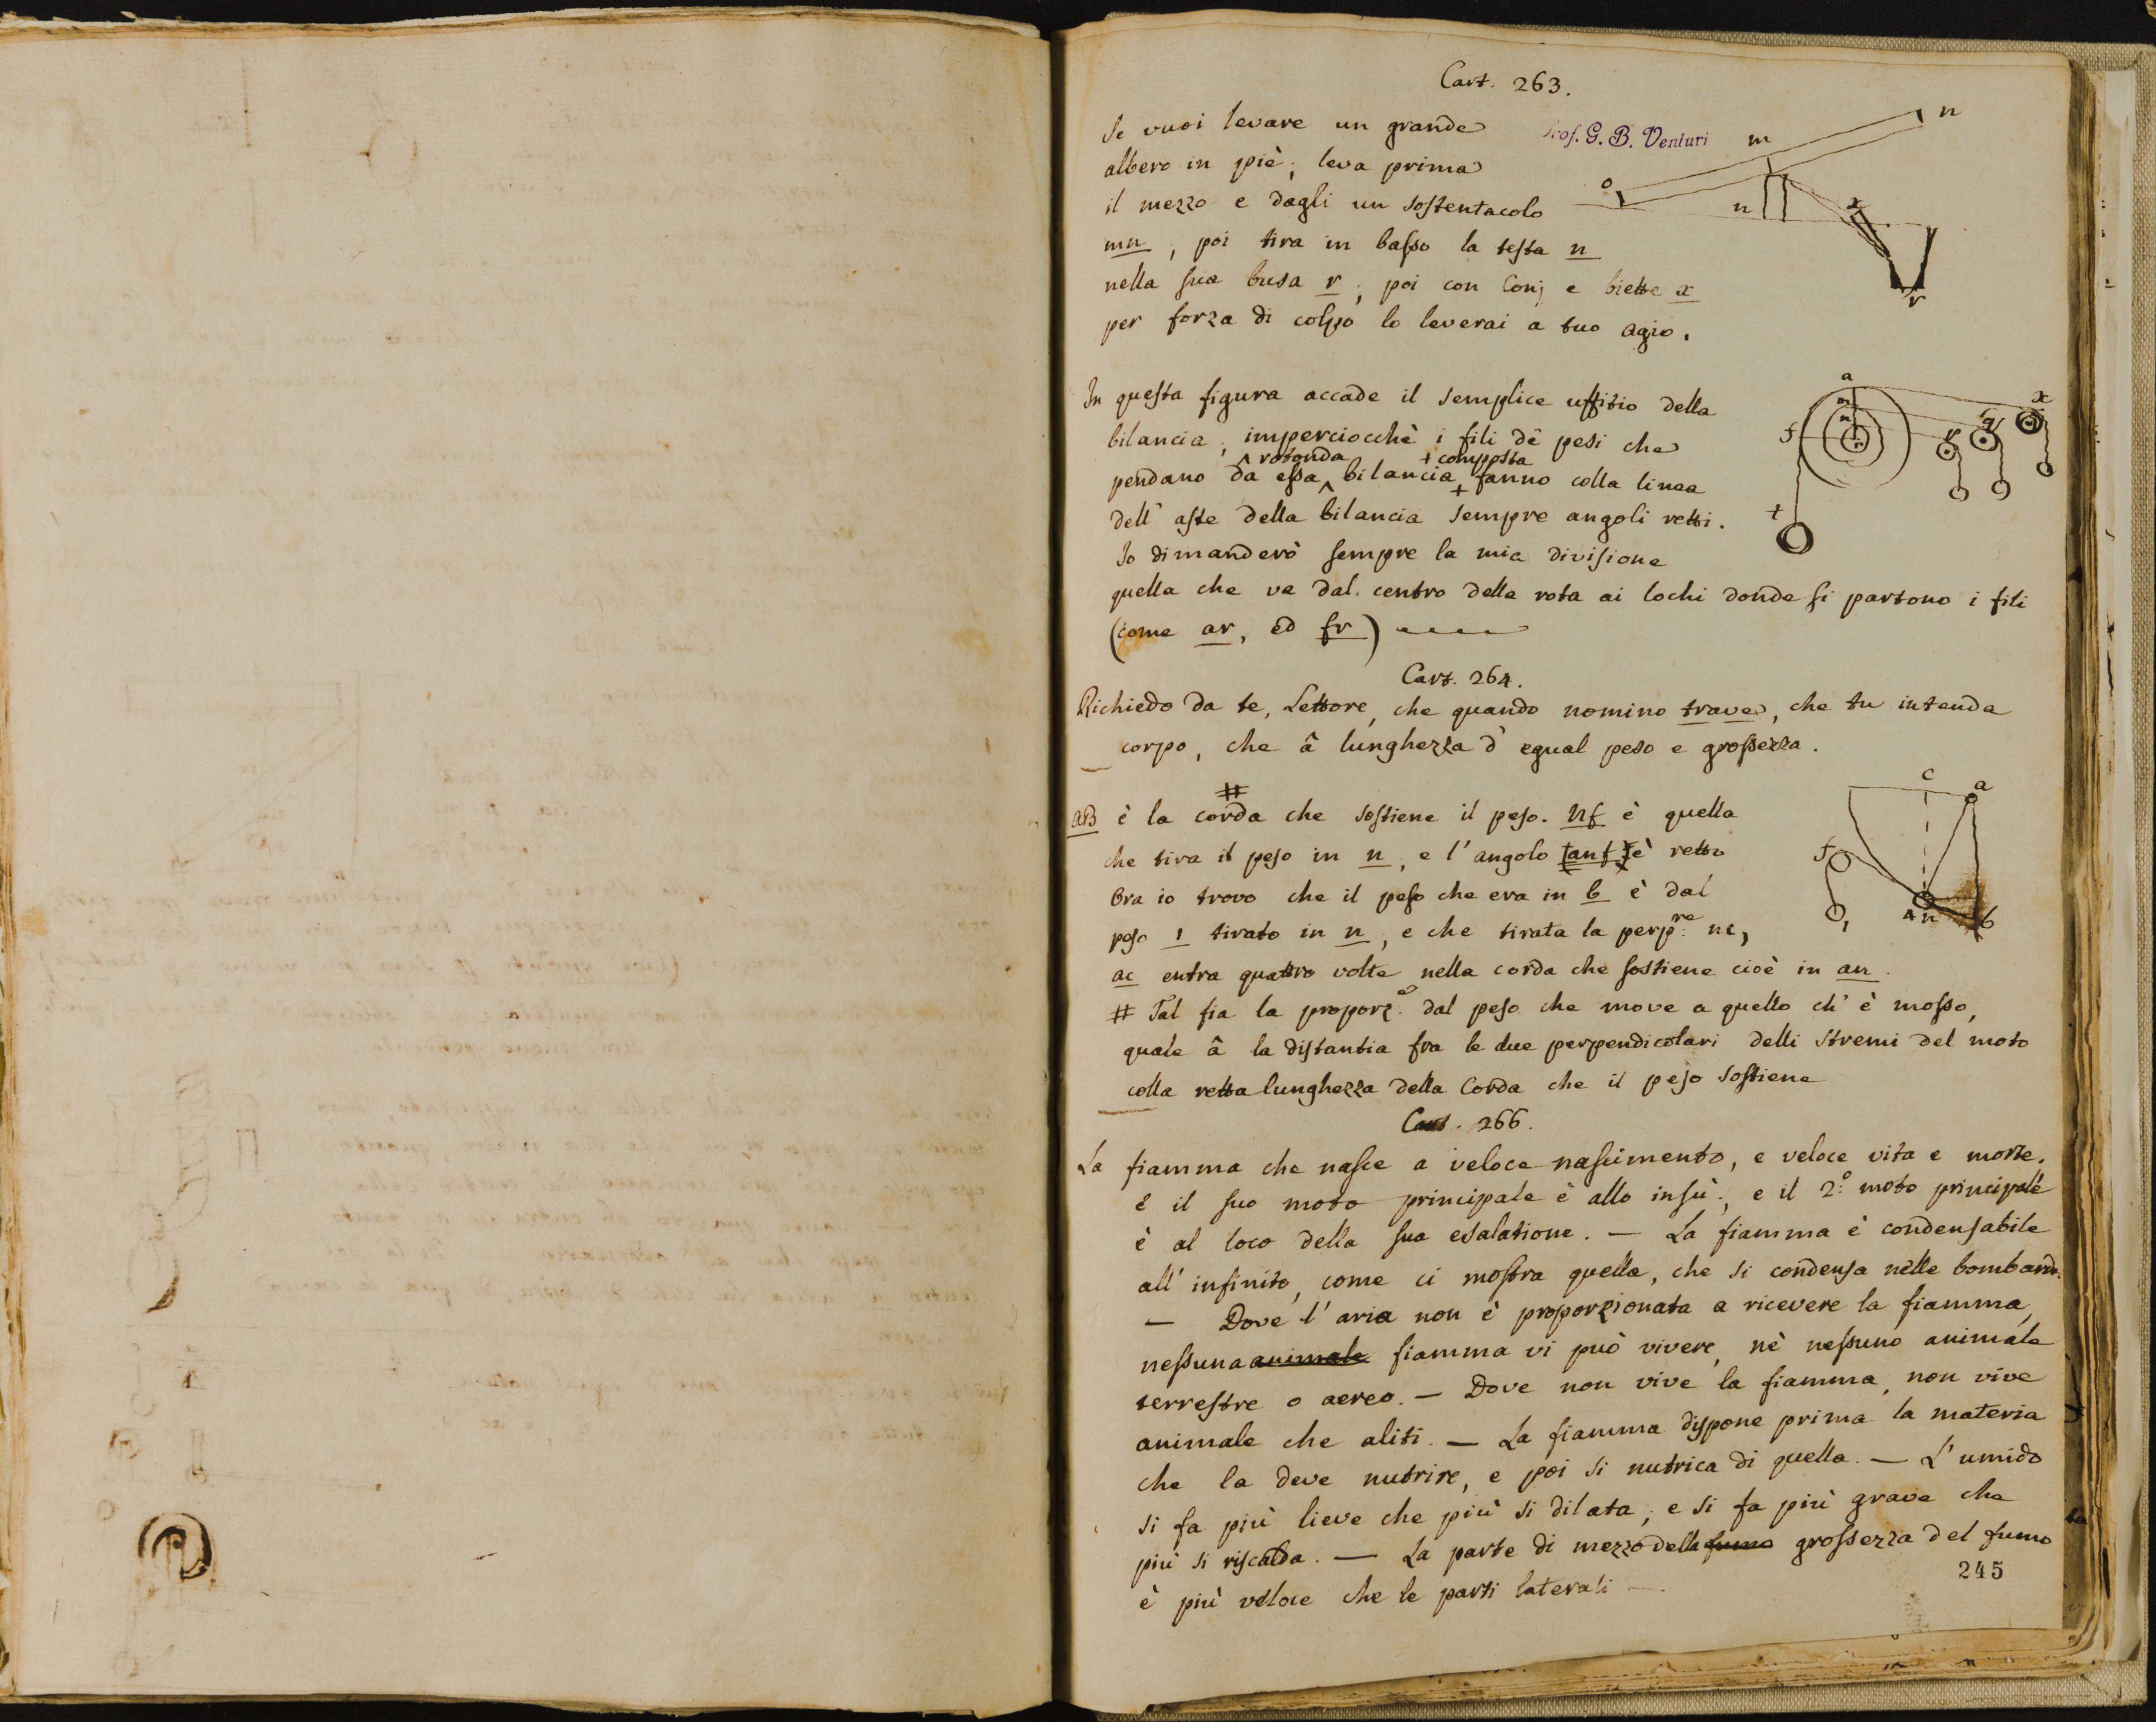 Cart. 263.
Prof. G. B. Venturi
Se vuoi levare un grande
albero in piè, leva prima
il mezzo e dagli un sostentacolo
mn, poi tira in basso la testa n
nella sua busa r, poi con Conj e biette x
per forza di colpo lo leverai a tuo agio.
n
m
o
n
x
r
In questa figura accade il semplice uffitio della
bilancia, imperciocchè i fili de pesi che
^ rotonda + composta
pendano da essa ^ bilancia + fanno colla linea
dell' aste della bilancia sempre angoli retti.
Io dimanderò sempre la mia divisione
quella che va dal centro della rota ai lochi donde si partono i fili
(come ar, ed fr)
a
m
n
r
f
v
q
x
t
Cart. 264.
Richiedo da te, Lettore, che quando nomino trave, che tu intenda
corpo, che â lunghezza d' egual peso e grossezza.
#
aB è la corda che sostiene il peso. nf è quella
che tira il peso in n, e l'angolo anf è retto
Ora io trovo che il peso che era in b è dal
peso 1 tirato in n, e che tirata la perp.re nc,
ac entra quattro volte nella corda che sostiene cioè in an.
# Tal fia la proporz.e dal peso che move a quello ch' è mosso,
quale â la distantia fra le due perpendicolari delli stremi del moto
colla retta lunghezza della Corda che il peso sostiene
c
a
f
1
4 n
b
Cart. 266.
La fiamma che nasce a veloce nascimento, e veloce vita e morte.
E il suo moto principale è allo insù, e il 2.o moto principale
è al loco della sua esalatione. — La fiamma è condensabile
all' infinito, come ci mostra quella, che si condensa nelle bombard.
— Dove l' aria non è proporzionata a ricevere la fiamma,
nessuna animale fiamma vi può vivere, nè nessuno animale
terrestre o aereo. — Dove non vive la fiamma, non vive
animale che aliti. — La fiamma dispone prima la materia
che la deve nutrire, e poi si nutrica di quella. — L' umido
si fa più lieve che più si dilata, e si fa più grave che
più si riscalda. — La parte di mezzo della fumo grossezza del fumo
è più veloce che le parti laterali —.
245